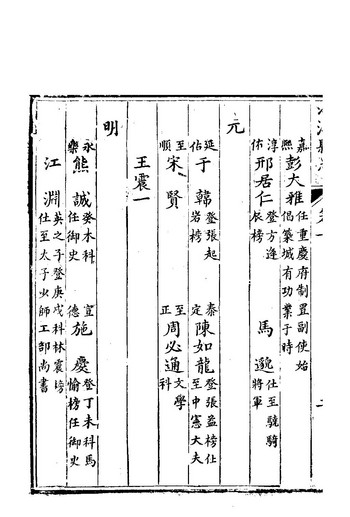 嘉熙 彭大雅 任重慶府制置副使始倡築城有功業于時
淳佑 邢居仁 登方逢辰榜 馬邈 仕至驍騎將軍
元
延佑 于韓 登張起岩榜 泰定 陳如龍 登張益榜仕至中憲大夫
至順 宋賢 至正 周必通 文學科
王震一
明
永樂 熊誠 癸未科任御史 宣德 施慶 登丁未科馬愉榜任御史
江淵 英之子登庚戌科林震榜仕至太子少師工部尚書